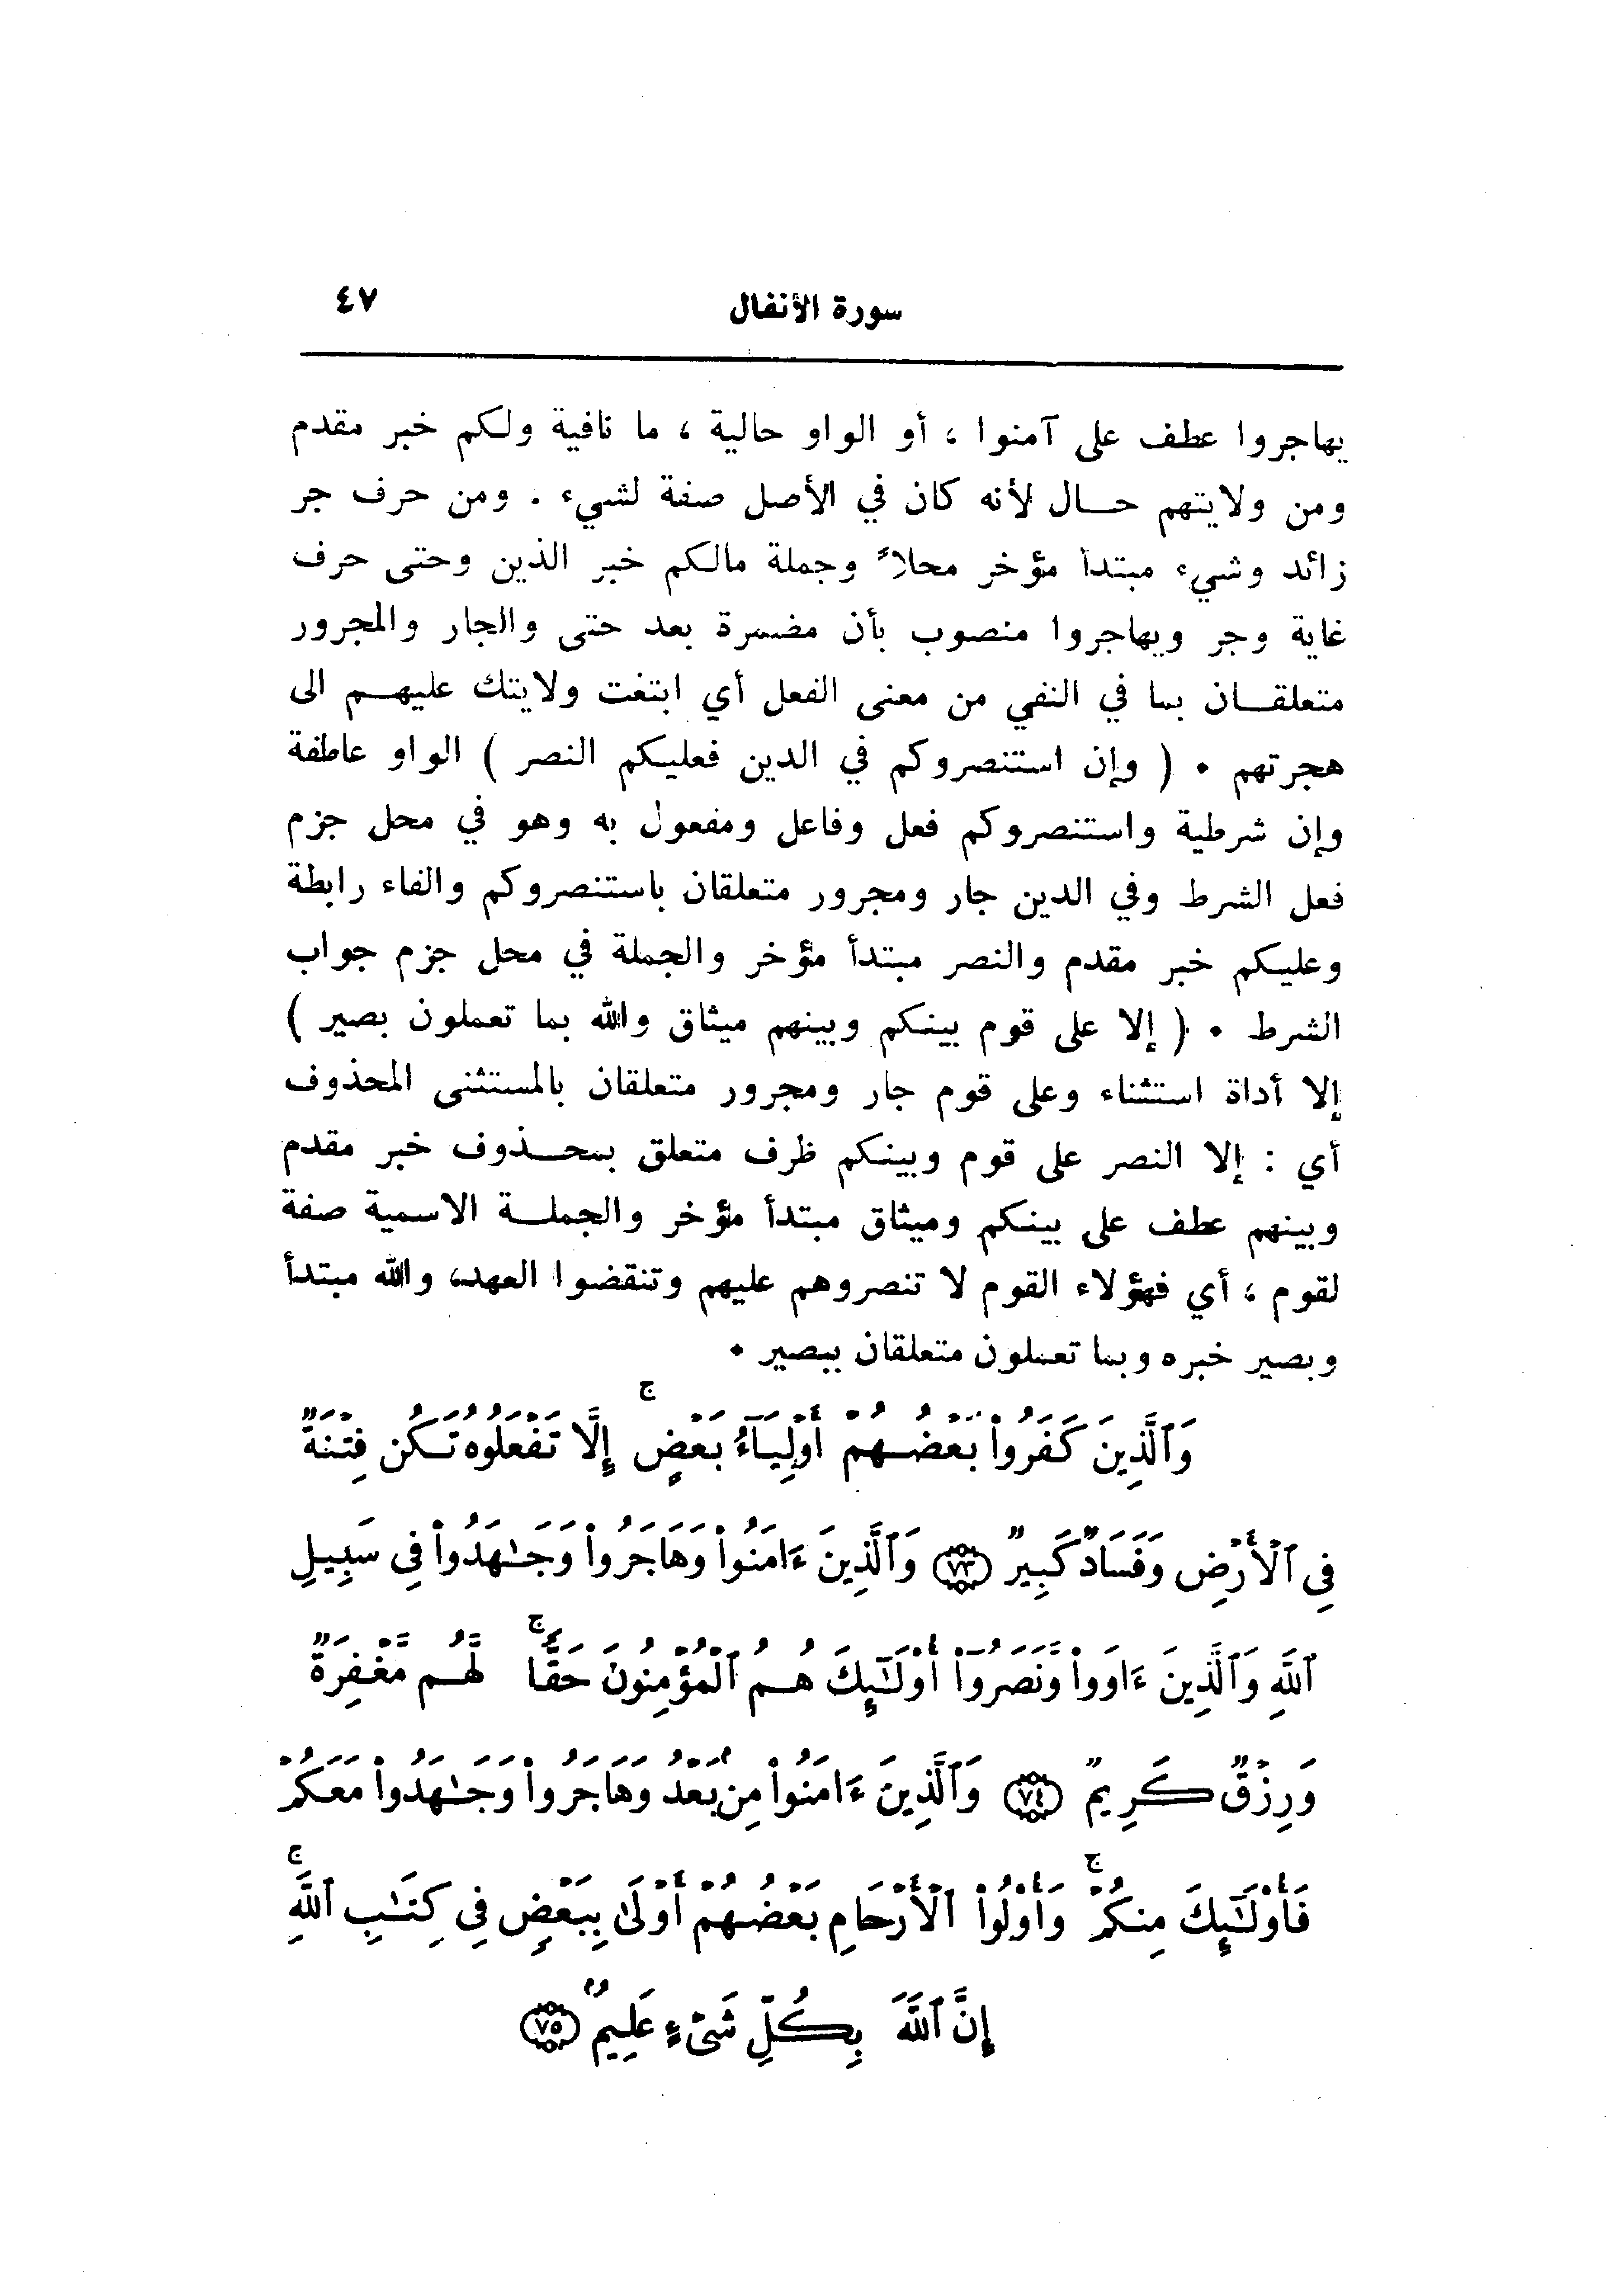 سورة الأنفال ٤٧
يهاجروا عطف على آمنوا ، أو الواو حالية ، ما نافية ولكم خبر مقدم
ومن ولايتهم حال لأنه كان في الأصل صفة لشيء . ومن حرف جر
زائد وشيء مبتدأ مؤخر محلاً وجملة مالكم خبر الذين وحتى حرف
غاية وجر ويهاجروا منصوب بأن مضمرة بعد حتى والجار والمجرور
متعلقان بما في النفي من معنى الفعل أي ابتغت ولايتك عليهم الى
هجرتهم . ( وإن استنصروكم في الدين فعليكم النصر ) الواو عاطفة
وإن شرطية واستنصروكم فعل وفاعل ومفعول به وهو في محل جزم
فعل الشرط وفي الدين جار ومجرور متعلقان باستنصروكم والفاء رابطة
وعليكم خبر مقدم والنصر مبتدأ مؤخر والجملة في محل جزم جواب
الشرط . ( إلا على قوم بينكم وبينهم ميثاق والله بما تعملون بصير )
إلا أداة استثناء وعلى قوم جار ومجرور متعلقان بالمستثنى المحذوف
أي : إلا النصر على قوم وبينكم ظرف متعلق بمحذوف خبر مقدم
وبينهم عطف على بينكم وميثاق مبتدأ مؤخر والجملة الاسمية صفة
لقوم ، أي فهؤلاء القوم لا تنصروهم عليهم وتنقضوا العهد، والله مبتدأ
وبصير خبره وبما تعملون متعلقان ببصير .
وَٱلَّذِينَ كَفَرُوا۟ بَعْضُهُمْ أَوْلِيَآءُ بَعْضٍ ۚ إِلَّا تَفْعَلُوهُ تَكُن فِتْنَةٌ
فِى ٱلْأَرْضِ وَفَسَادٌ كَبِيرٌ ٧٣ وَٱلَّذِينَ ءَامَنُوا۟ وَهَاجَرُوا۟ وَجَـٰهَدُوا۟ فِى سَبِيلِ
ٱللَّهِ وَٱلَّذِينَ ءَاوَوا۟ وَّنَصَرُوٓا۟ أُو۟لَـٰٓئِكَ هُمُ ٱلْمُؤْمِنُونَ حَقًّا ۚ لَّهُم مَّغْفِرَةٌ
وَرِزْقٌ كَرِيمٌ ٧٤ وَٱلَّذِينَ ءَامَنُوا۟ مِنۢ بَعْدُ وَهَاجَرُوا۟ وَجَـٰهَدُوا۟ مَعَكُمْ
فَأُو۟لَـٰٓئِكَ مِنكُمْ ۚ وَأُو۟لُوا۟ ٱلْأَرْحَامِ بَعْضُهُمْ أَوْلَىٰ بِبَعْضٍ فِى كِتَـٰبِ ٱللَّهِ ۚ
إِنَّ ٱللَّهَ بِكُلِّ شَىْءٍ عَلِيمٌۢ ٧٥